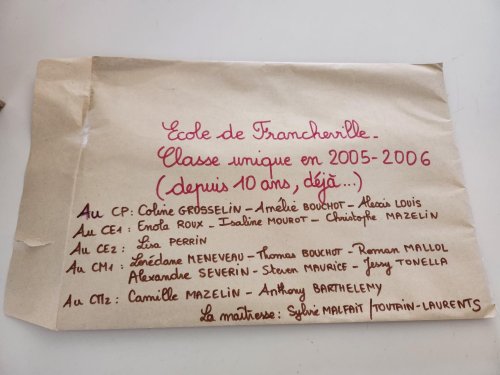 Ecole de Francheville.
Classe unique en 2005-2006
(depuis 10 ans, déjà...)
Au CP: Coline GROSSELIN - Amélie BOUCHOT - Alexis LOUIS
Au CE1: Enola ROUX - Isaline MOUROT - Christophe MAZELIN
Au CE2: Lisa PERRIN
Au CM1: Lorédane MENEVEAU - Thomas BOUCHOT - Roman MALLOL
Alexandre SEVERIN - Steven MAURICE - Jessy TONELLA
Au CM2: Camille MAZELIN - Anthony BARTHELEMY
La maîtresse: Sylvie MALFAIT/TOUTAIN-LAURENTS